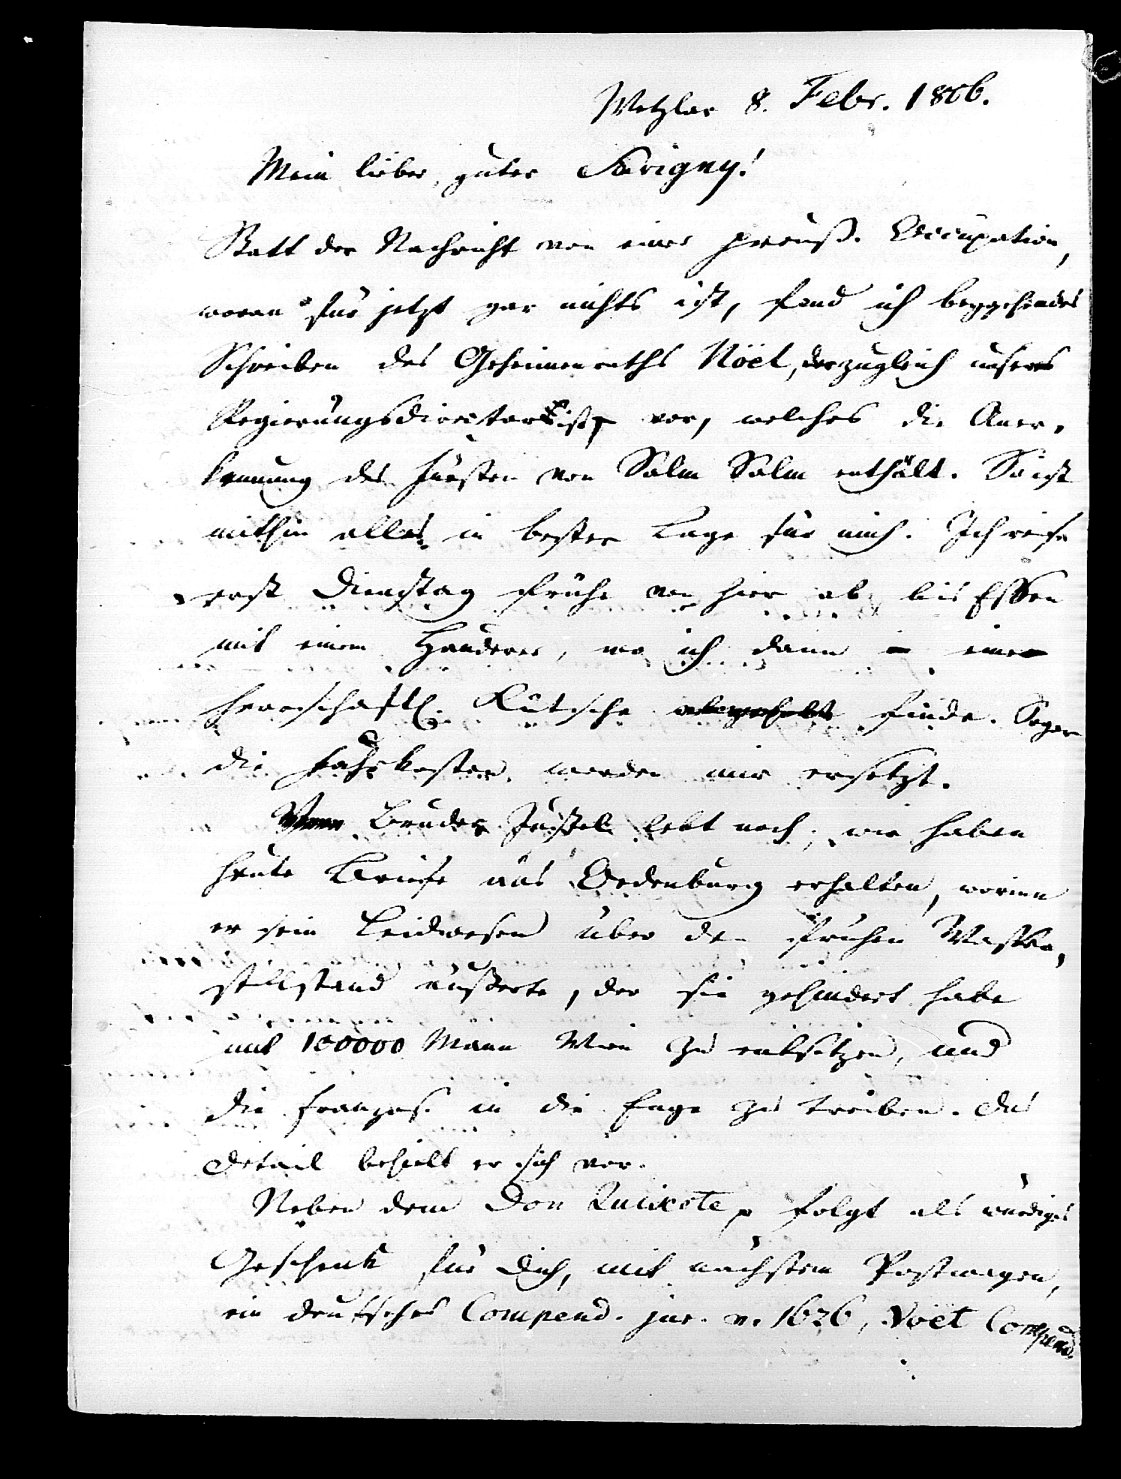 Wetzlar 8. Febr. 1806.
Mein lieber, guter Savigny!
Statt der Nachricht von einer preuß. Occupation,
woran für jetzt gar nichts ist, fand ich beygehendes
Schreiben des Geheimenraths Nöel, der zugleich unseres
Regierungsdirector ist, vor, welches die Aner-
kennung des Fürsten von Salm Salm enthält. So ist
mithin alles in bester Lage für mich. Ich reise
erst Dienstag frühe von hier ab, bis Essen
mit einem Hauderer, wo ich dann eine
herrschaftl. Kutsche finde. Sogar
die Fahrkosten werden mir ersetzt.
Bruder Justel lebt noch; wir haben
heute Briefe aus Oedenburg erhalten, worinn
er sein Leidwesen über den fruhen Waffen,
stillstand äußerte, der sie gehindert habe
mit 100000 Mann Wien zu entsetzen, und
die Franzos. in die Enge zu treiben. Das
Detail behielt er sich vor.
Neben dem Don Quixote folgt als würdiges
Geschenk für Dich, mit nächstem Postwagen,
ein deutsches Compend. jur. v. 1626, Voet Compend.